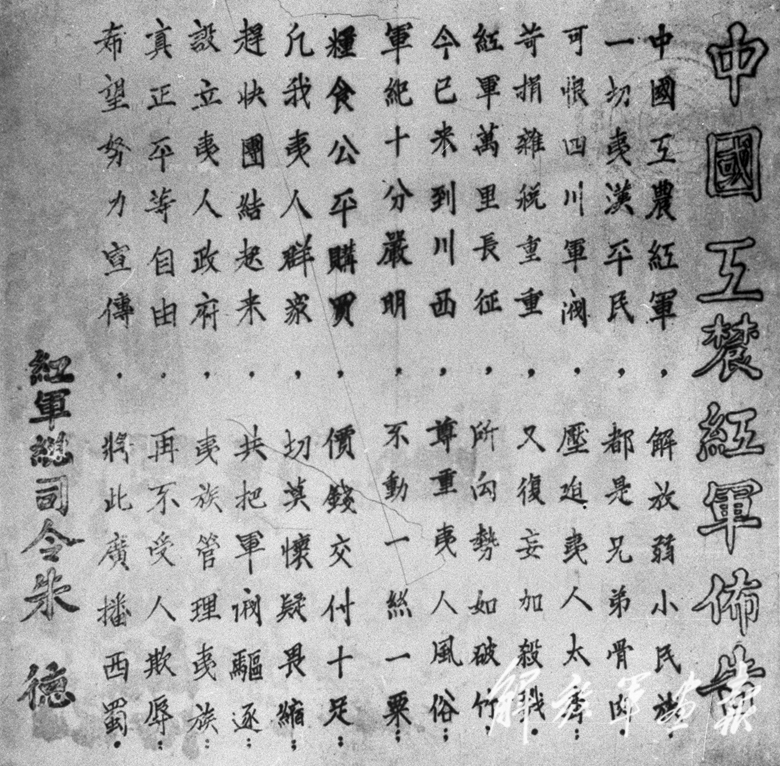 中國工農紅軍佈告
中國工農紅軍，解放弱小民族
一切夷漢平民，都是兄弟骨肉
可恨四川軍阀，壓迫夷人太毒：
苛捐雜稅重重，又復妄加殺戮。
紅軍萬里長征，所向勢如破竹，
今已来到川西，尊重夷人風俗：
軍紀十分嚴明，不動一絲一粟：
糧食公平購買，價錢交付十足：
凢我夷人群衆，切莫懷疑畏縮：
趕快團結起来，共把軍阀驅逐：
設立夷人政府，夷族管理夷族：
真正平等自由，再不受人欺辱：
希望努力宣傳，將此廣播西蜀。
紅軍總司令朱德
解放军画报